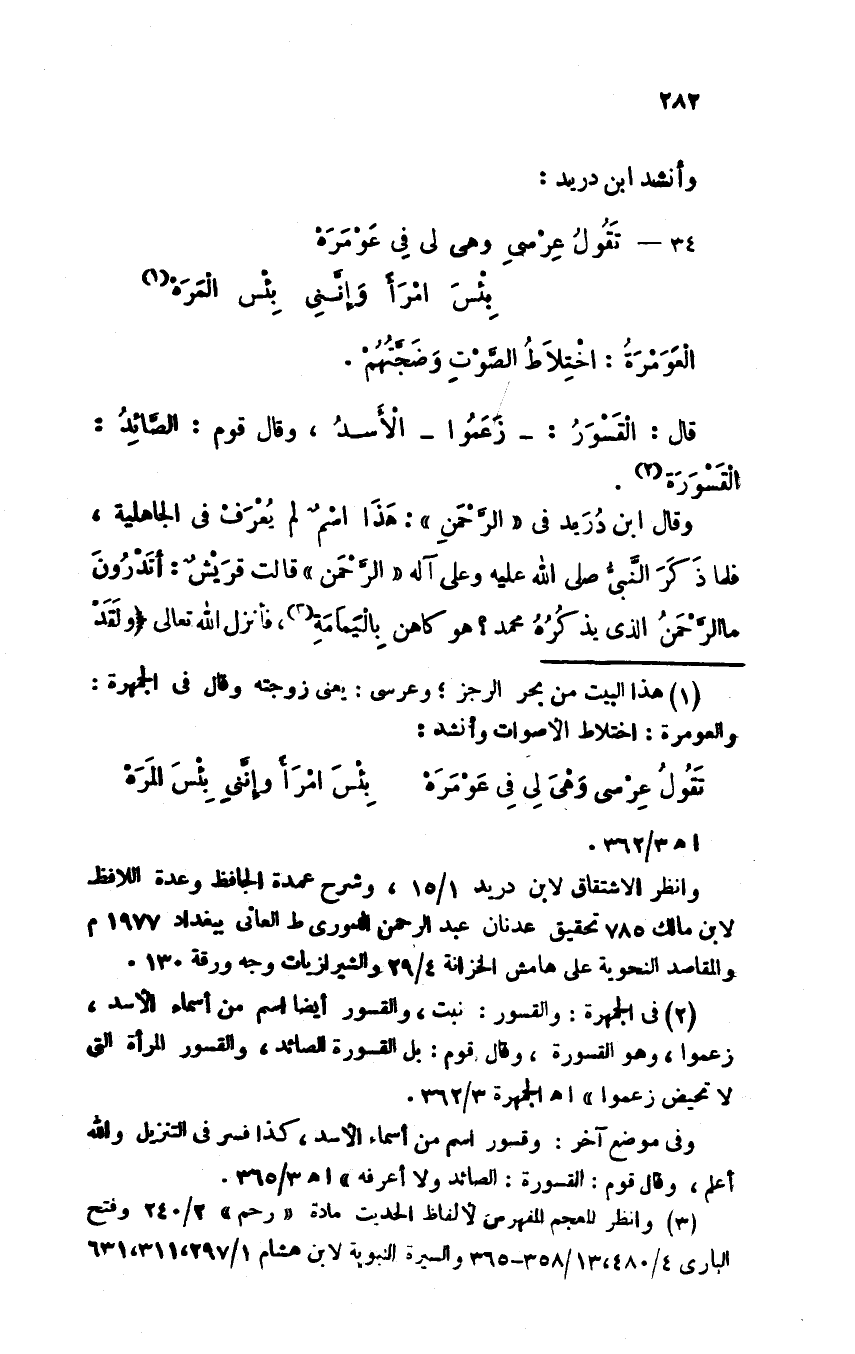 ٢٨٢
وأنشد ابن دريد :
٣٤ — تَقُولُ عِرْسِى وهى لى فِى عَوْمَرَهْ
بِئْسَ امْرَأً وَإِنَّنِى بِئْس الْمَرَهْ(١)
الْعَوْمَرَةُ : اخْتِلاَطُ الصَّوْتِ وَضَجَّتُهُمْ .
قال : الْقَسْوَرُ : ـ زَعَمُوا ـ الْأَسدُ ، وقال قوم : الصَّائِدُ :
الْقَسْوَرَة(٢) .
وقال ابن دُرَيد فى « الرَّحْمَنِ » : هَذَا اسْمٌ لم يُعْرَفْ فى الجاهلية ،
فلما ذَكَرَ النَّبِىُّ صلى الله عليه وعلى آله « الرَّحْمَن » قالت قريْشٌ : أَتَدْرُونَ
ماالرَّحْمَنُ الذى يذكُرُهُ محمد ؟ هو كاهن بِالْيَمَامَةِ(٣)، فأنزل الله تعالى ﴿ولَقَدْ
(١) هذا البيت من بحر الرجز ؛ وعرسى : يعنى زوجته وقال فى الجمهرة :
والعومرة : اختلاط الأصوات وأنشد :
تَقُولُ عِرْسى وَهْىَ لِى فى عَوْمَرَهْ بِئْسَ امْرَأً وإِنَّنِى بِئْسَ المَرَهْ
اه ٣٦٢/٣ .
وانظر الاشتقاق لابن دريد ١٥/١ ، وشرح عمدة الحافظ وعدة اللافظ
لابن مالك ٧٨٥ تحقيق عدنان عبد الرحمن الدورى ط العانى ببغداد ١٩٧٧ م
والمقاصد النحوية على هامش الخزانة ٢٩/٤ والشيرازيات وجه ورقة ١٣٠ .
(٢) فى الجمهرة : والقسور : نبت ، والقسور أيضا اسم من أسماء الأسد ،
زعموا ، وهو القسورة ، وقال قوم : بل القسورة الصائد ، والقسور المرأة التى
لا تحيض زعموا » اه الجمهرة ٣٦٢/٣ .
وفى موضع آخر : وقسور اسم من أسماء الأسد ، كذا فسر فى التنزيل والله
أعلم ، وقال قوم : القسورة : الصائد ولا أعرفه » اه ٣٦٥/٣ .
(٣) وانظر المعجم المفهرس لألفاظ الحديث مادة « رحم » ٢٤٠/٢ وفتح
البارى ٤٨٠/٤،١٣/ ٣٥٨–٣٦٥ والسيرة النبوية لابن هشام ٢٩٧/١،٣١١،٦٣١